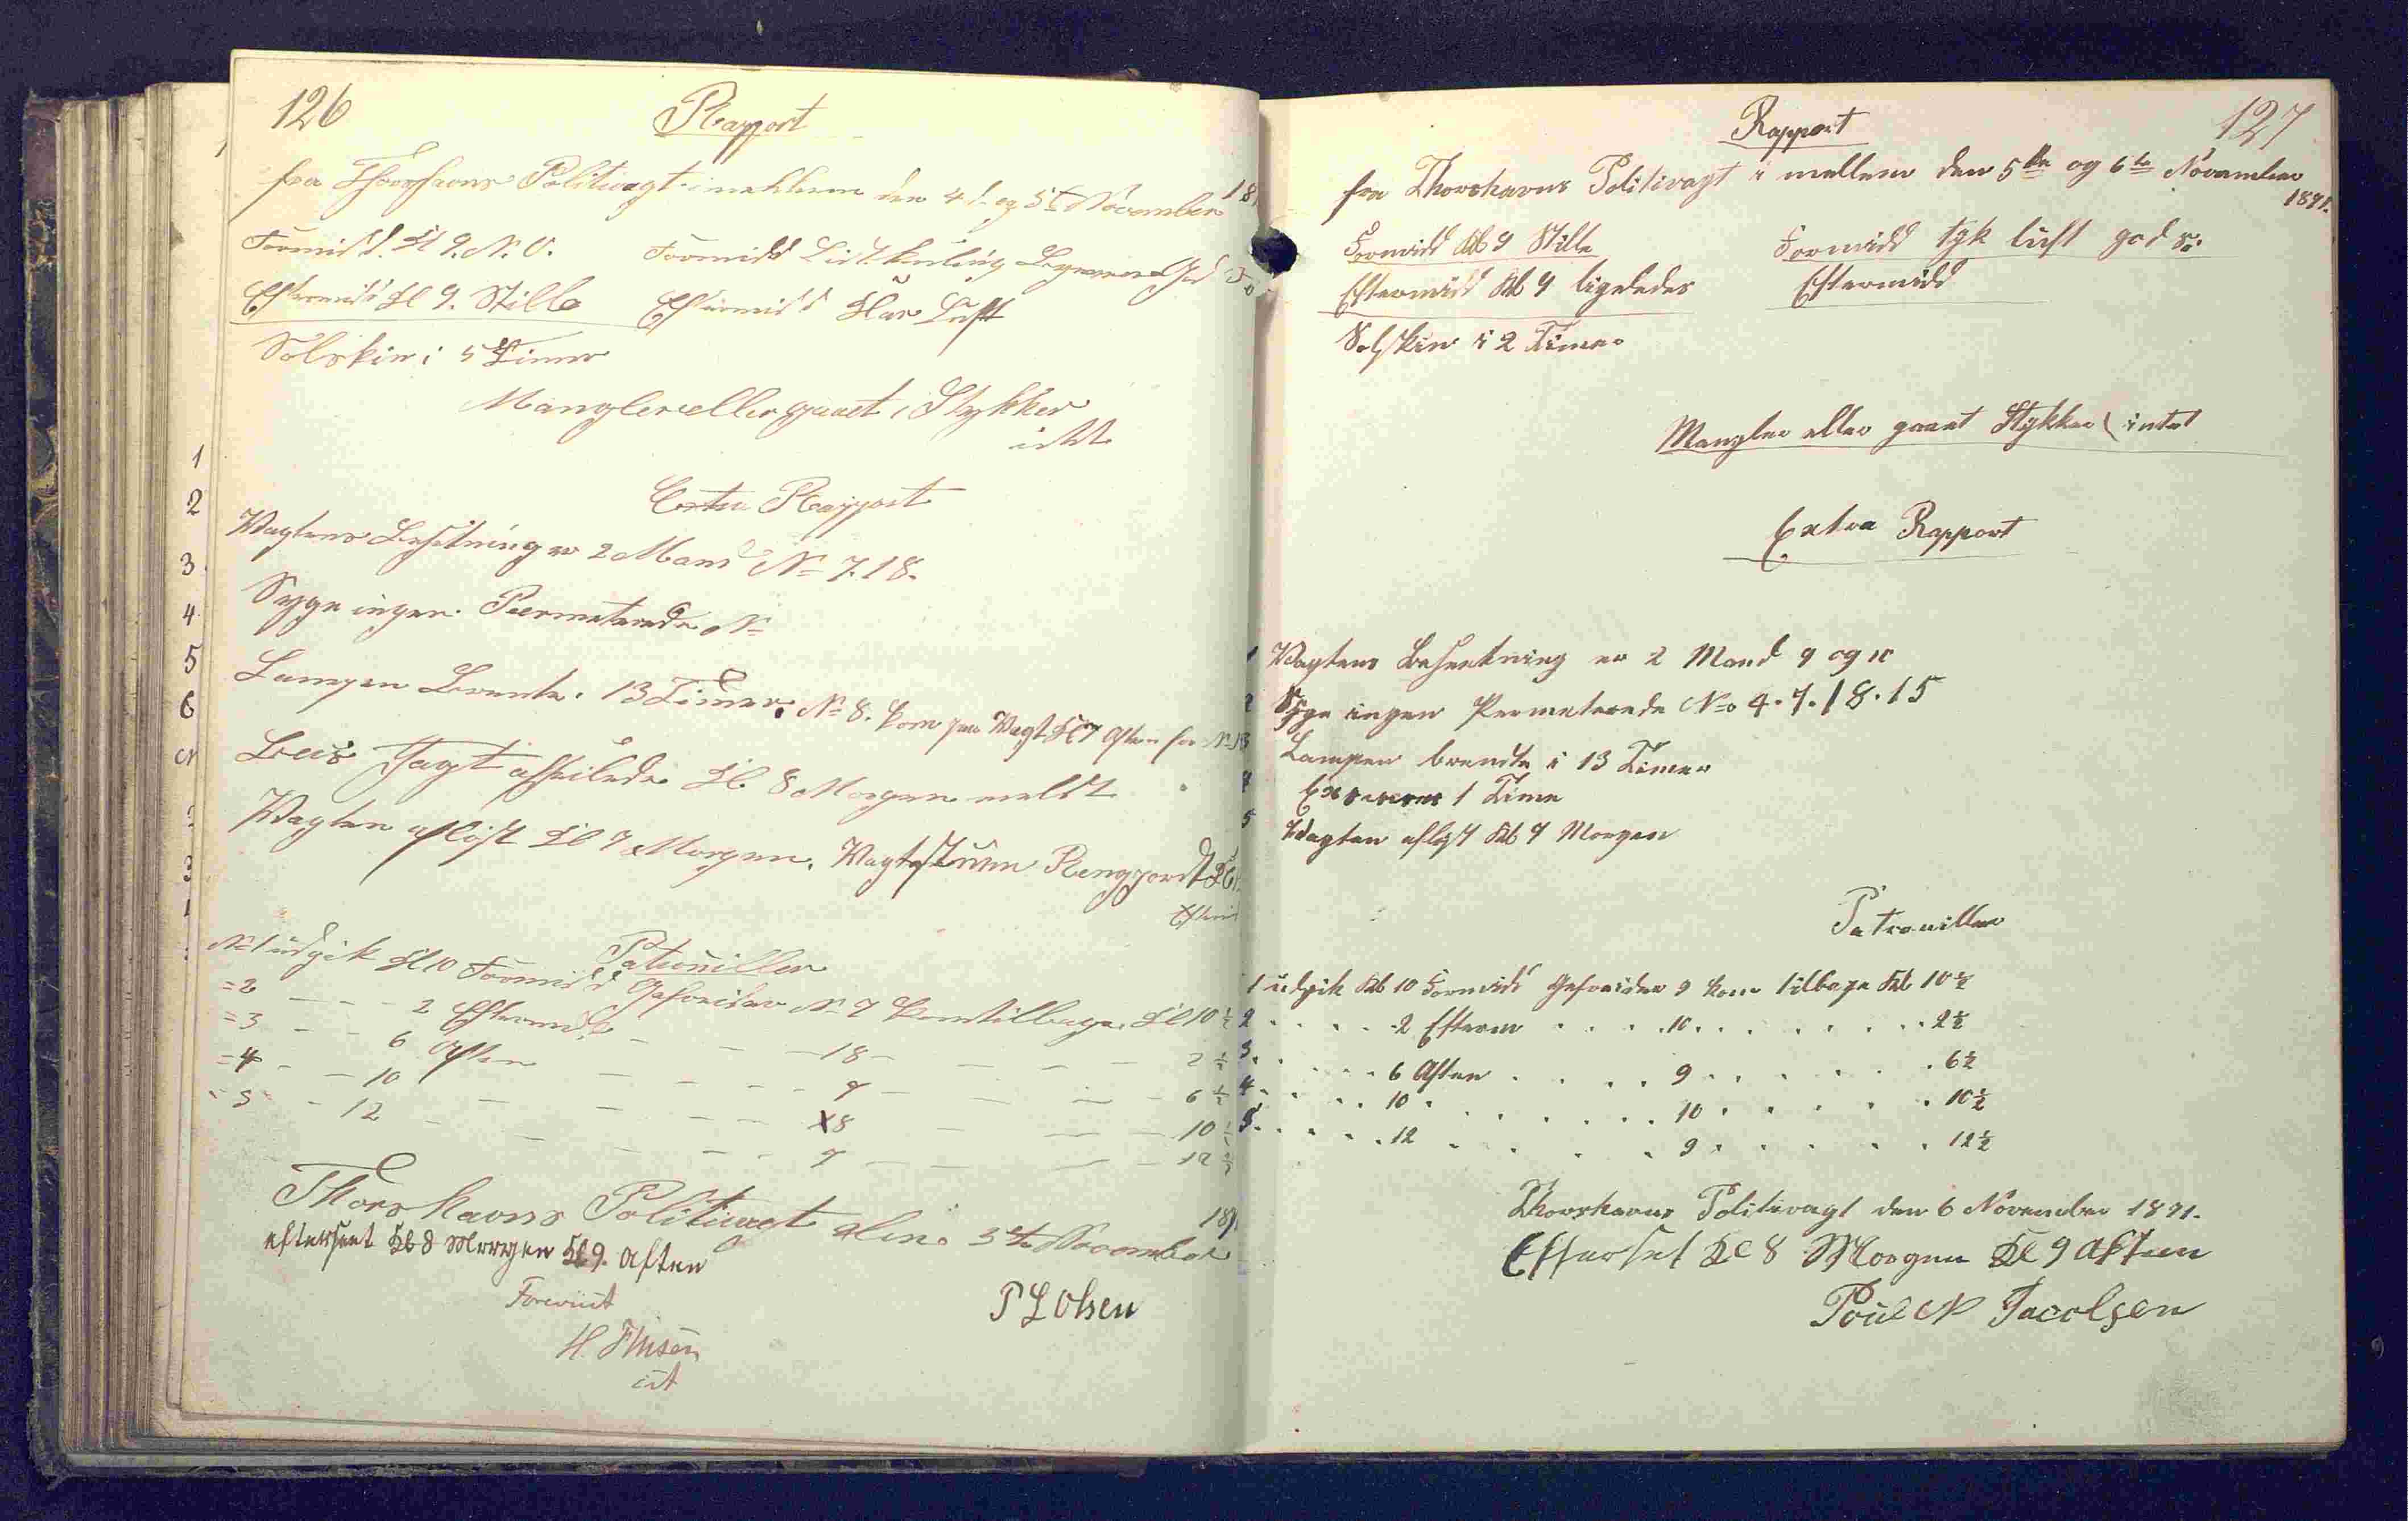 126
Rapport
fra Thorshavns Politivagt imellem den 4de og 5te November 18
Formidd. Kl 9. N. O.
Formidd Lidt kuling Byger God
Eftermidd Kl 9. Stille
Eftermidd Klar Luft
Solskin i 5 Timer
Mangler eller gaaet i Stykker
intet
Extra Rapport
Vagtens Besetning er 2 Mand No 7.18.
Syge ingen. Permeterede No
Lampen Brente. 13 Timer. No 8. kom paa Vagt Kl 7 Aften for No 1
Jagt afseilede Kl. 8 Morgen meldt
Vagten afløst Kl 7 Morgen. Vagtstuen Rengjordt Kl
Patrouiller
No 1 udgik Kl 10 Formidd Geforider No 7 kom tilbage Kl 10 ½
=2 — — - 2 Eftermd. — — — 18 — — — — 2 ½
=3 — — 6 Aften — — — 7 — — — — 6 ½
=4 - — 10 — — — — 18 — — — 10 ½
- 5 - - 12 — — — — 7 — — — 12 ½
Thorshavns Politivagt den 5te November 189
efterseet Kl 8 Morgen Kl 9. Aften
P L Olsen
127
Rapport
fra Thorshavns Politivagt i mellem den 5te og 6te November
1891.
Formidd Kl 9 Stille
Formidd tyk luft god Sø.
Eftermidd Kl 9 ligeledes
Eftermidd
Solskin i 2 Timer
Mangler eller gaaet Stykker intet
Extra Rapport
1 Vagtens Besætning er 2 Mand 9 og 10
2 Syge ingen Permeterede No 4.7.18.15
3 Lampen brendte i 13 Timer
4 Exserseres 1 Time
5 Vagten afløst Kl 7 Morgen
Patrouiller
1 udgik Kl 10 Formidd Geforider 9 kom tilbage Kl 10 ½
2 . . . . . 2 Efterm . . . . 10 . . . . . . . 2 ½
3 . . . . . 6 Aften . . . . 9 . . . . . . 6 ½
4 . . . . . 10 . . . . . . 10 . . . . . . 10 ½
5 . . . . . 12 . . . . . 9 . . . . . . 12 ½
Thorshavns Politivagt den 6 November 1891.
Efterset Kl 8 Morgen Kl 9 Aften
Poul N Jacobsen